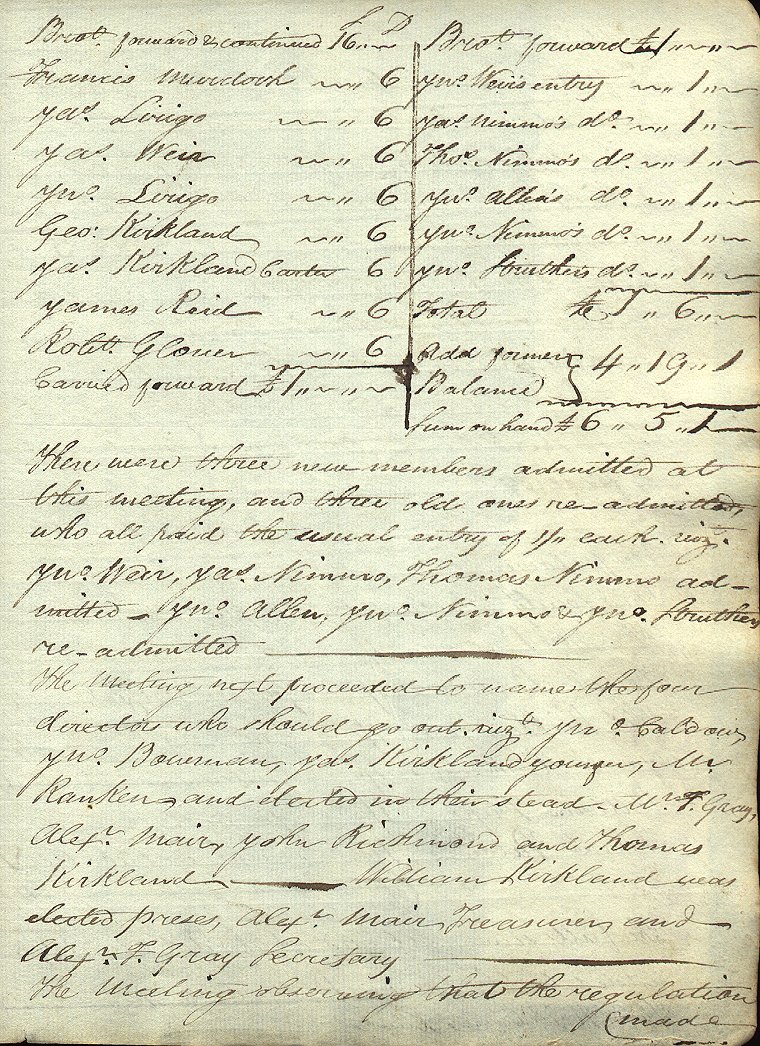 S D
Brot. forward & continued 16 „ ~
Francis Murdoch ~ „ 6
Jas. Lirigo ~ „ 6
Jas. Weir ~ „ 6
Jno. Lirigo ~ „ 6
Geo: Kirkland ~ „ 6
Jas. Kirkland Carter 6
James Reid ~ „ 6
Robt. Glover ~ „ 6
Carried forward £ 1 „ ~ „ ~
Brot. forward £ 1 „ ~ „ ~
Jno. Weir's entry ~ „ 1 „ ~
Jas. Nimmo's do. ~ „ 1 „ ~
Thos. Nimmo's do. ~ „ 1 „ ~
Jno. Allen's do. ~ „ 1 „ ~
Jno. Nimmo's do. ~ „ 1 „ ~
Jno. Struthers do. ~ „ 1 „ ~
Total £ 1 „ 6 „ ~
Add former } 4 „ 19 „ 1
Balance
Sum on hand £ 6 „ 5 „ 1
There were three new members admitted at
this meeting, and three old ones re-admitted,
who all paid the usual entry of 1/„ each. vizt.
Jno. Weir, Jas. Nimmo, Thomas Nimmo ad-
mitted - Jno. Allen, Jno. Nimmo & Jno. Struthers
re-admitted
The Meeting next proceeded to name the four
directors who should go out. vizt. Jno. Caldow,
Jno. Bowman, Jas. Kirkland younger, Mr.
Ranken, and elected in their stead - Mr. F. Gray,
Alexr. Mair, John Richmond and Thomas
Kirkland — William Kirkland was
elected preses, Alexr. Mair Treasurer, and
Alexr. F. Gray Secretary
The Meeting observing that the regulation
(made